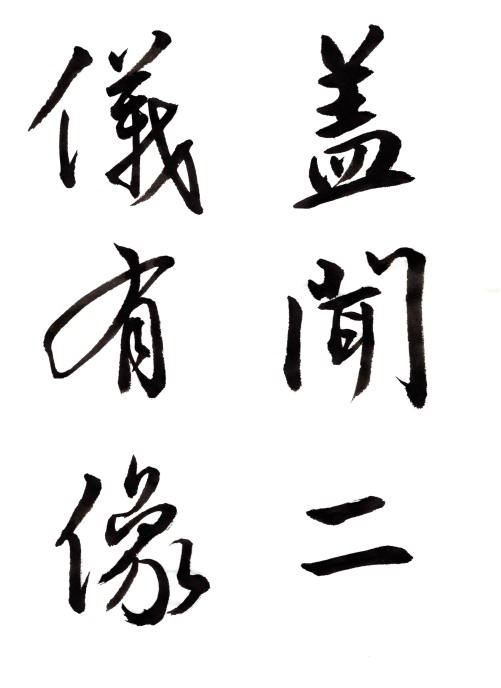 盖聞二
儀有像